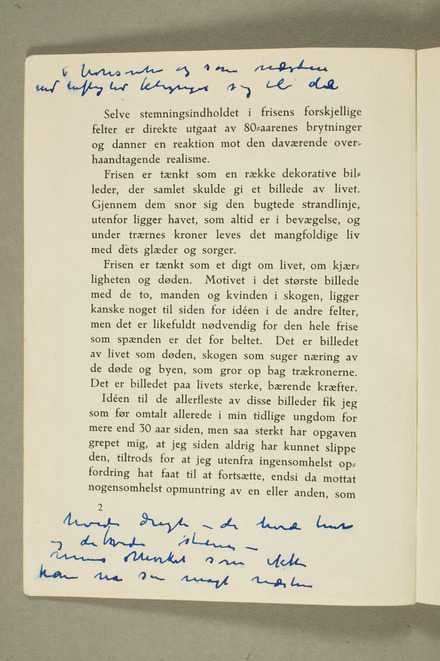 og som næsten
sig til det
Selve stemningsindholdet i frisens forskjellige
felter er direkte utgaat av 80-aarenes brytninger
og danner en reaktion mot den daværende over-
haandtagende realisme.
Frisen er tænkt som en række dekorative bil-
leder, der samlet skulde gi et billede av livet.
Gjennem dem snor sig den bugtede strandlinje,
utenfor ligger havet, som altid er i bevægelse, og
under trærnes kroner leves det mangfoldige liv
med dets glæder og sorger.
Frisen er tænkt som et digt om livet, om kjær-
ligheten og døden. Motivet i det største billede
med de to, manden og kvinden i skogen, ligger
kanske noget til siden for idéen i de andre felter,
men det er likefuldt nødvendig for den hele frise
som spænden er det for beltet. Det er billedet
av livet som døden, skogen som suger næring av
de døde og byen, som gror op bag trækronerne.
Det er billedet paa livets sterke, bærende kræfter.
Idéen til de allerfleste av disse billeder fik jeg
som før omtalt allerede i min tidlige ungdom for
mere end 30 aar siden, men saa sterkt har opgaven
grepet mig, at jeg siden aldrig har kunnet slippe
den, tiltrods for at jeg utenfra ingensomhelst op-
fordring hat faat til at fortsætte, endsi da mottat
nogensomhelst opmuntring av en eller anden, som
2
og de
som ikke
kan næsten